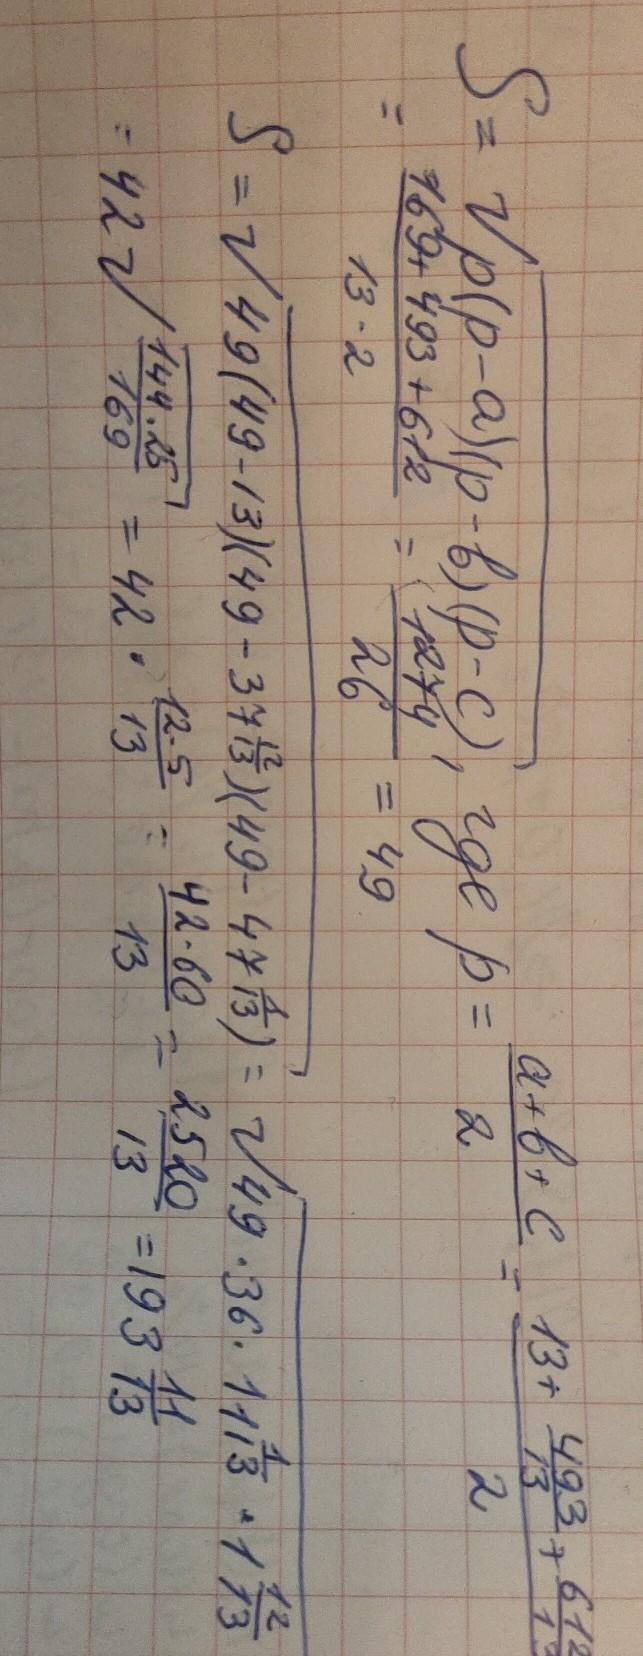 S = √p(p-a)(p-b)(p-c), где p = (a+b+c)/2 = (13 + 493/13 + 612/13)/2
= (169+493+612)/(13·2) = 1274/26 = 49
S = √49(49-13)(49-37 12/13)(49-47 1/13) = √49·36·11 1/13·1 12/13
= 42√(144·25/169) = 42·(12·5)/13 = (42·60)/13 = 2520/13 = 193 11/13